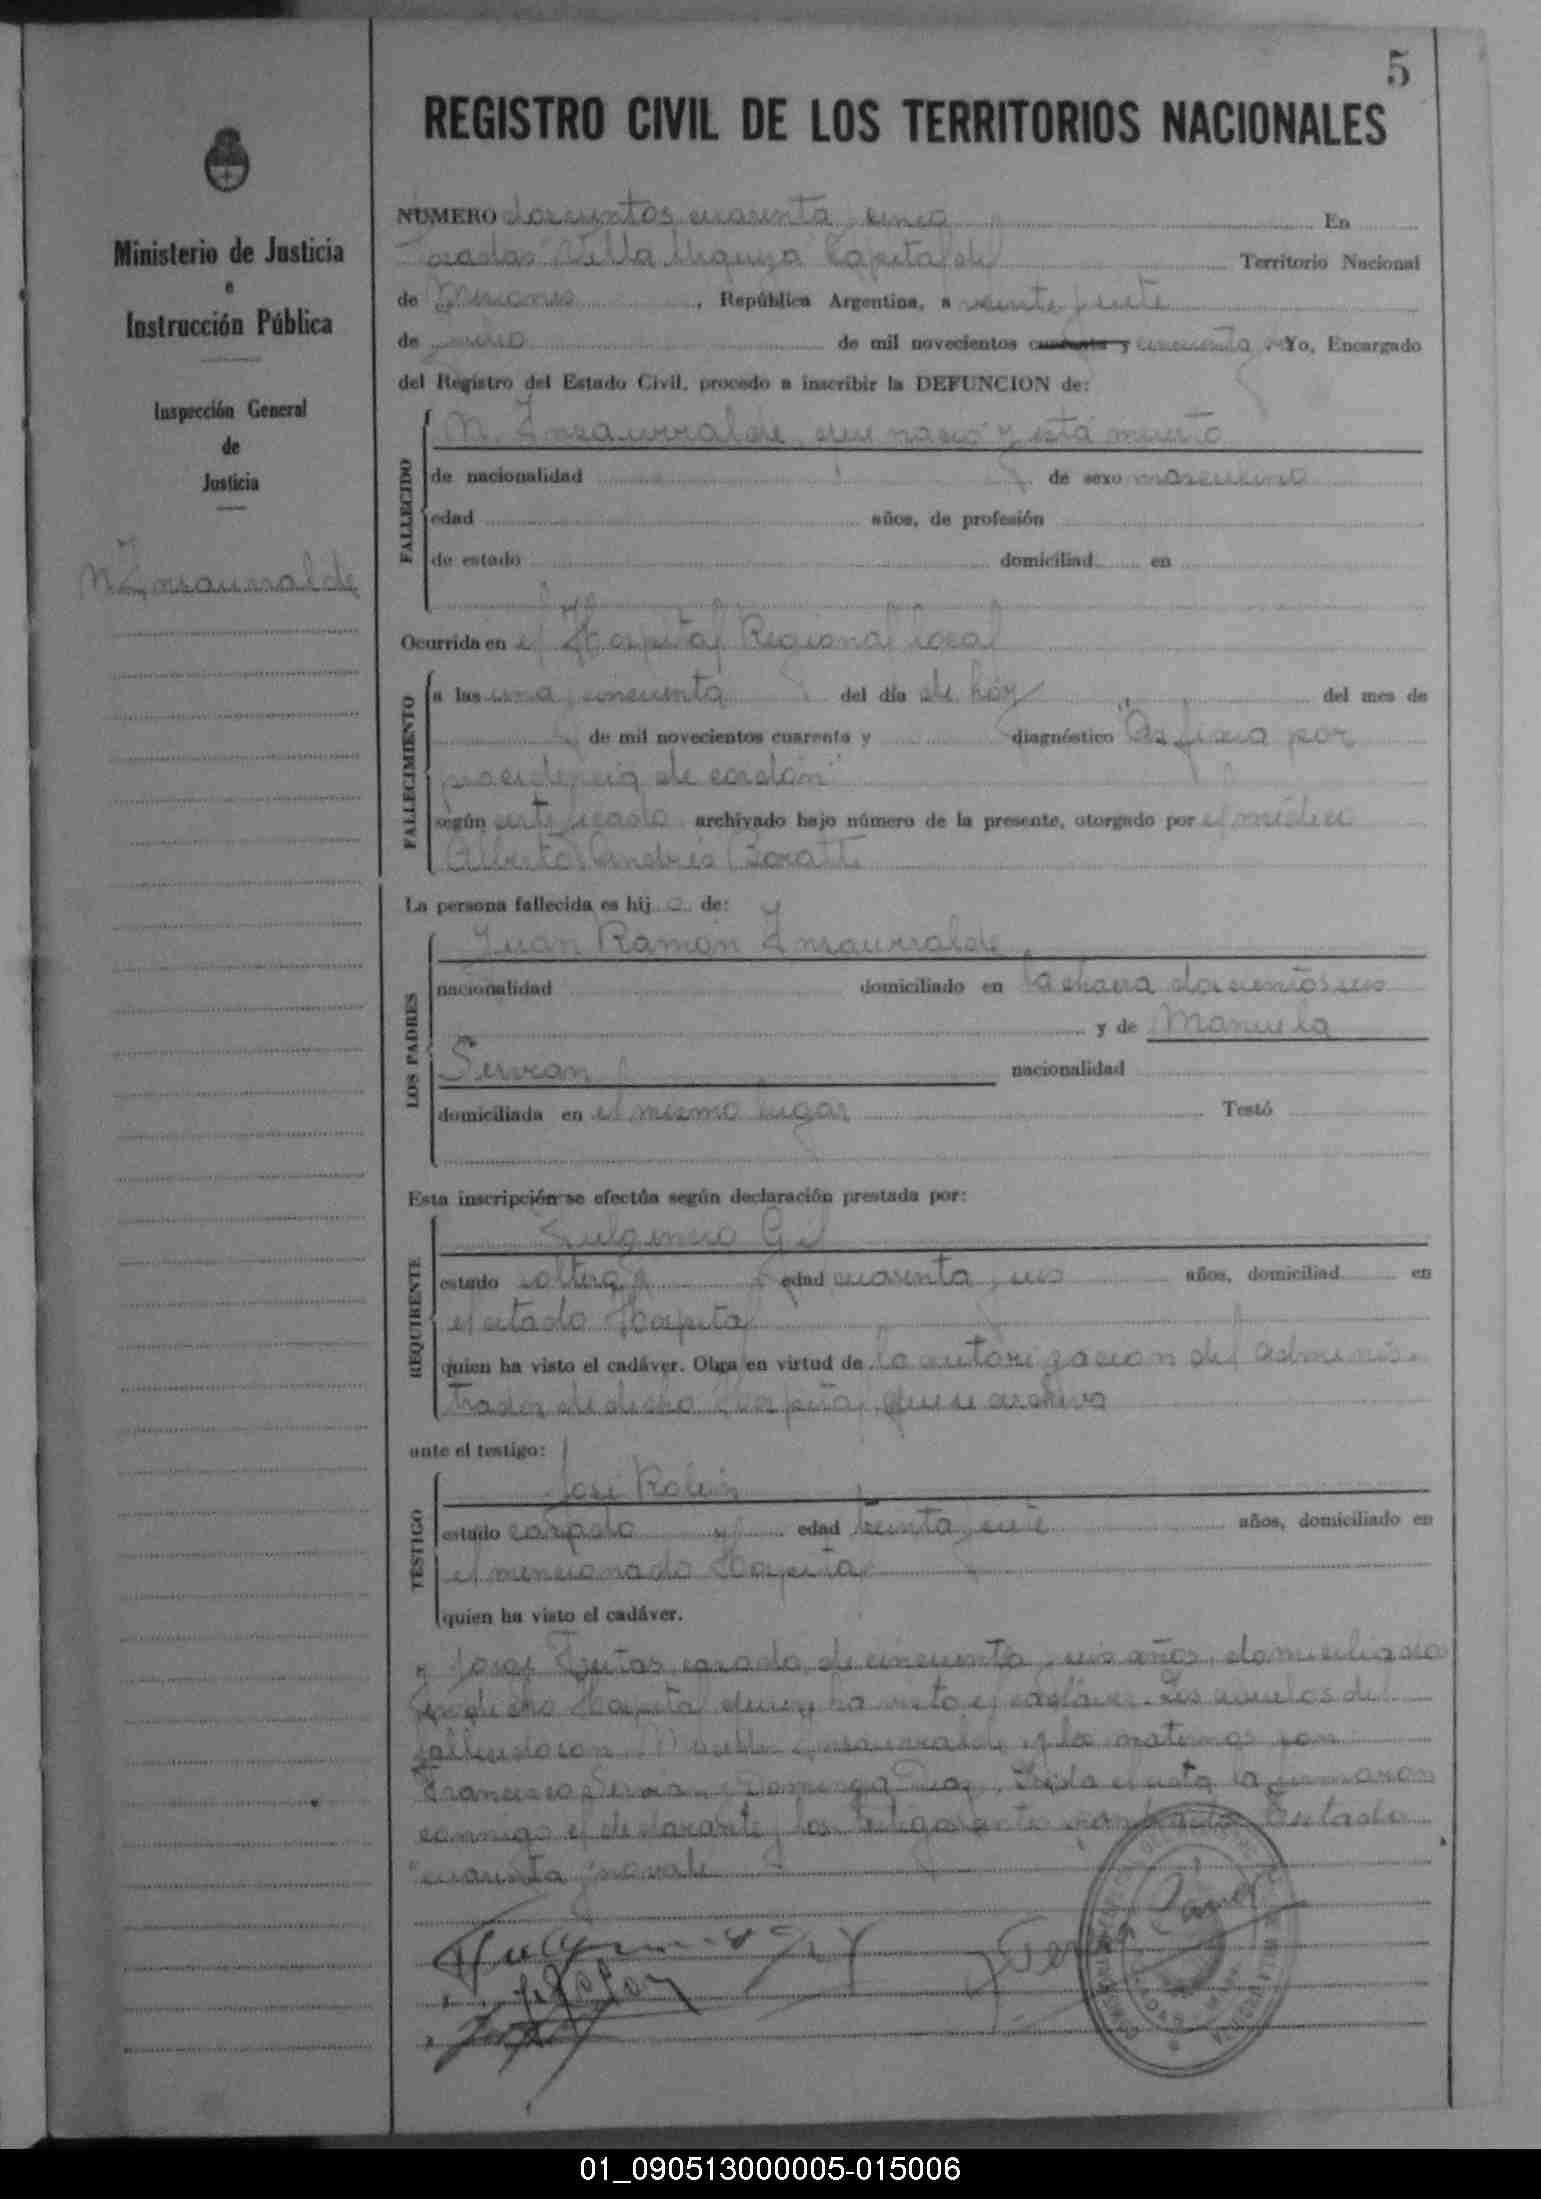 5
REGISTRO CIVIL DE LOS TERRITORIOS NACIONALES
Ministerio de Justicia
e
Instrucción Pública
Inspección General
de
Justicia
N. Insaurralde
NÚMERO doscientos cuarenta y cinco En
Posadas "Villa Urquiza" Capital del Territorio Nacional
de Misiones, República Argentina, a veinte y siete
de de mil novecientos cuarenta y cincuenta Yo, Encargado
del Registro del Estado Civil, procedo a inscribir la DEFUNCION de:
FALLECIDO
N. Insaurralde, que nació y está muerto
de nacionalidad de sexo masculino
edad años, de profesión
de estado domiciliad en
Ocurrida en el Hospital Regional local
FALLECIMIENTO
a las una y cincuenta del día de hoy del mes de
de mil novecientos cuarenta y diagnóstico "Asfixia por
procidencia de cordón"
según certificado archivado bajo número de la presente, otorgado por el médico
Alberto Andrés
La persona fallecida es hijo de:
LOS PADRES
Juan Ramón Insaurralde
nacionalidad domiciliado en la chacra doscientos
y de Manuela
Servian nacionalidad
domiciliada en el mismo lugar Testó
Esta inscripción se efectúa según declaración prestada por:
REQUIRENTE
Fulgencio Gil
estado soltero edad cuarenta y años, domiciliad en
el citado Hospital
quien ha visto el cadáver. Obra en virtud de la autorización del Adminis-
trador de dicho Hospital que se archiva
ante el testigo:
TESTIGO
José
estado casado edad treinta y siete años, domiciliado en
el mencionado Hospital
quien ha visto el cadáver.
y casado, de cincuenta y seis años, domiciliado
en dicho Hospital quien ha visto el cadáver. Los abuelos del
fallecido son Insaurralde y los maternos son
Francisco Servian y Dominga Leída el acta la firmaron
conmigo el declarante y los testigos Testado
"cuarenta y no vale
01_090513000005-015006